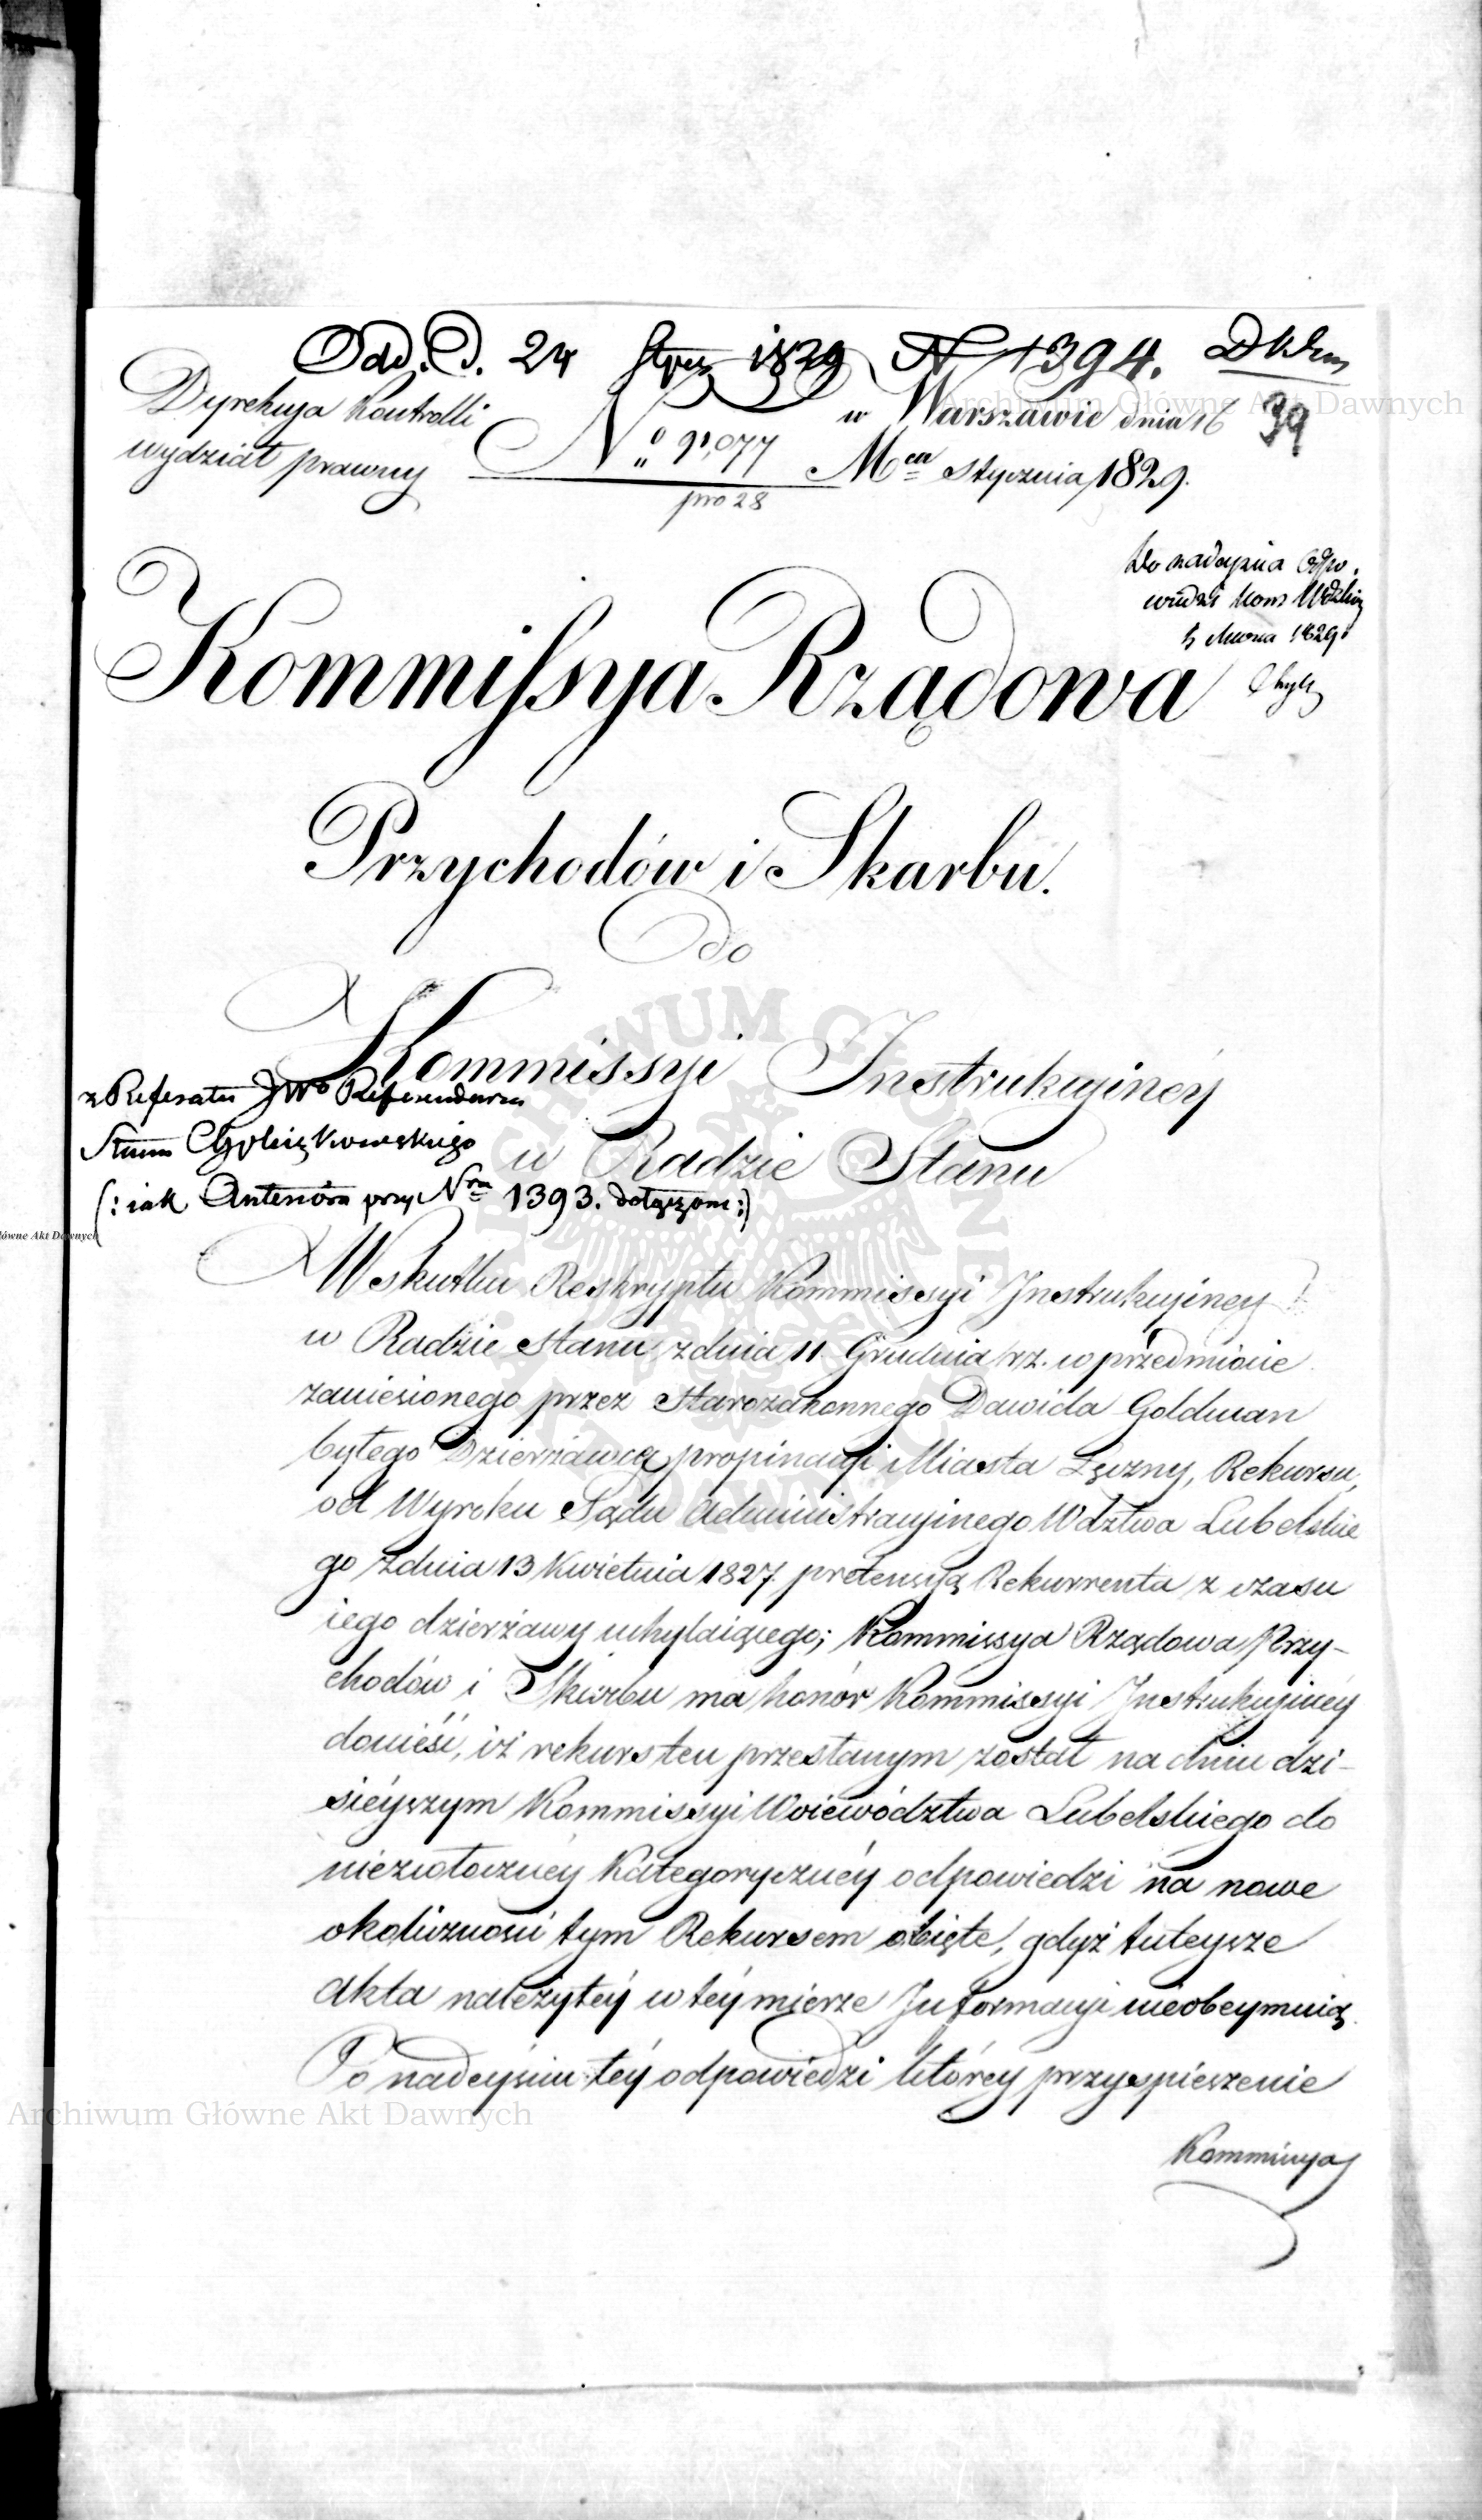 Odd. D. 24 Stycz 1829 N 1394.
39
Dyrekcya Kontrolli
wydział prawny
No 91,077
pro 28
w Warszawie dnia 16
Mca Stycznia 1829.
Do nadeyścia odpo-
wiedzi Kom Wdzkiey
5 Marca 1829
Kommissya Rządowa
Przychodów i Skarbu.
Do
Kommissyi Instrukcyiney
w Radzie Stanu
z Referatu JWo Referendarza
Stanu
(: iak Anteriora przy Nrm 1393. dołączone :)
Wskutku Reskryptu Kommissyi Instrukcyiney
w Radzie Stanu z dnia 11 Grudnia rz. w przedmiocie
zaniesionego przez Starozakonnego Dawida Goldman
byłego Dzierżawcę propinacyi Miasta Łęczny, Rekursu,
od Wyroku Sądu Administracyinego Wdztwa Lubelskie
go z dnia 13 Kwietnia 1827. pretensyą Rekurrenta z czasu
iego dzierżawy uchylaiącego; Kommissya Rządowa Przy-
chodów i Skarbu ma honór Kommissyi Instrukcyinéy
donieść, iż rekurs ten przesłanym został na dniu dzi-
siéyszym Kommissyi Woiewództwa Lubelskiego do
niezwłocznéy kategorycznéy odpowiedzi na nowe
okoliczności tym Rekursem obięte, gdyż tuteysze
akta należytéy w téy mierze Informacyi nieobeymuią.
Po nadeyściu téy odpowiedzi któréy przyspieszenie
Kommissya
Archiwum Główne Akt Dawnych
Archiwum Główne Akt Dawnych